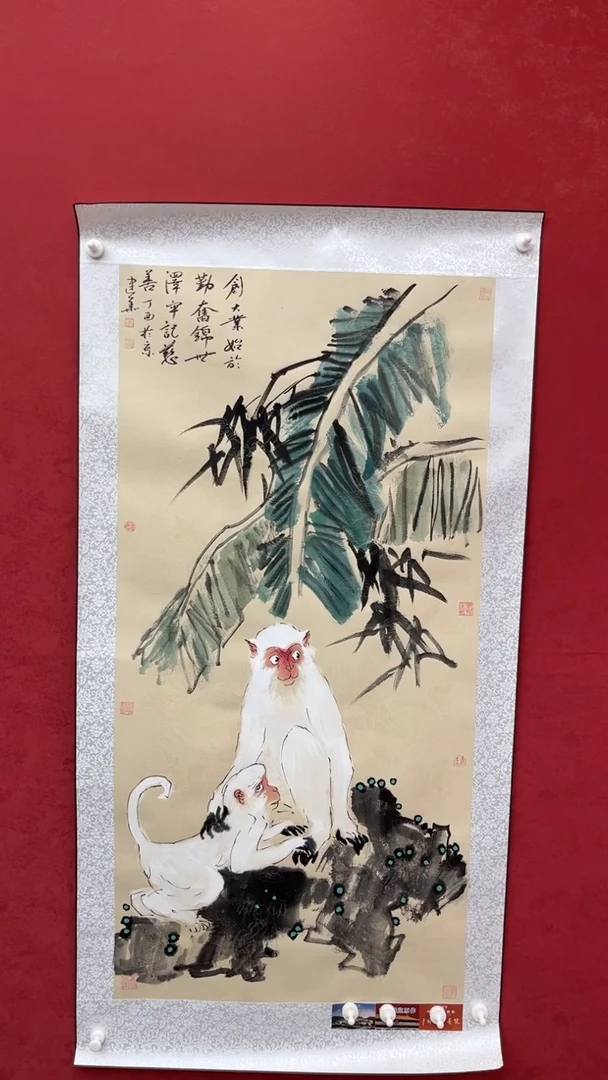 創大業始於
勤奮錦世
澤牢記慈
善丁酉於京
建華